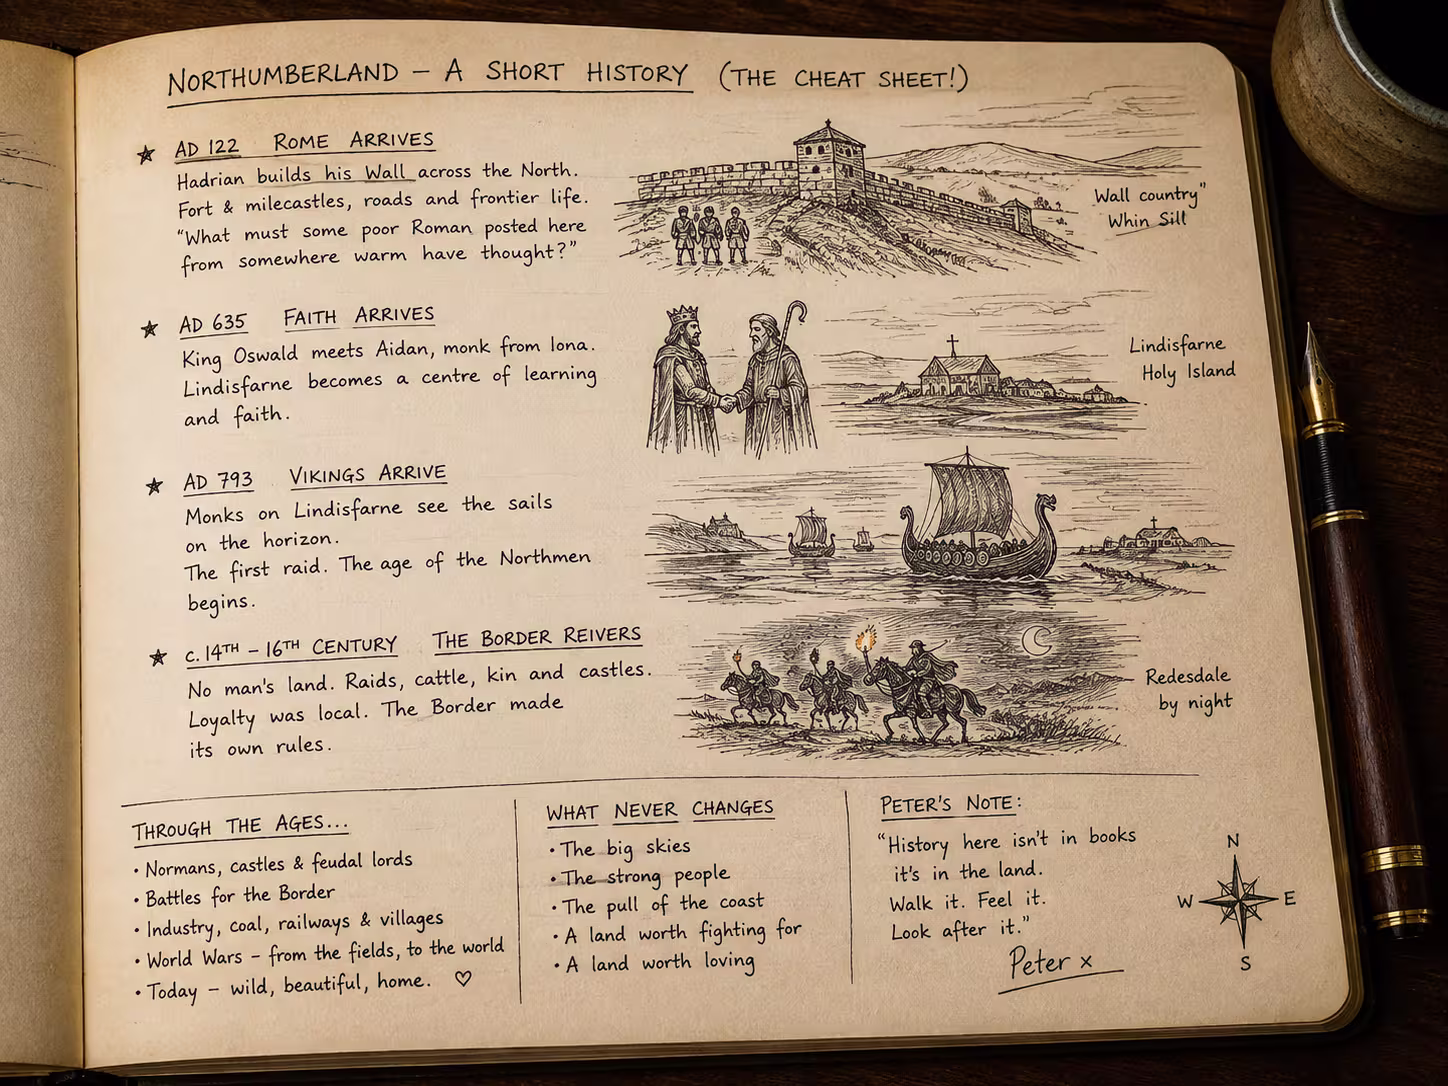 NORTHUMBERLAND – A SHORT HISTORY (THE CHEAT SHEET!)
AD 122 ROME ARRIVES
Hadrian builds his Wall across the North.
Fort & milecastles, roads and frontier life.
"What must some poor Roman posted here
from somewhere warm have thought?"
Wall country"
Whin Sill
AD 635 FAITH ARRIVES
King Oswald meets Aidan, monk from Iona.
Lindisfarne becomes a centre of learning
and faith.
Lindisfarne
Holy Island
AD 793 VIKINGS ARRIVE
Monks on Lindisfarne see the sails
on the horizon.
The first raid. The age of the Northmen
begins.
c. 14TH – 16TH CENTURY THE BORDER REIVERS
No man's land. Raids, cattle, kin and castles.
Loyalty was local. The Border made
its own rules.
Redesdale
by night
THROUGH THE AGES...
• Normans, castles & feudal lords
• Battles for the Border
• Industry, coal, railways & villages
• World Wars – from the fields, to the world
• Today – wild, beautiful, home. ♡
WHAT NEVER CHANGES
• The big skies
• The strong people
• The pull of the coast
• A land worth fighting for
• A land worth loving
PETER'S NOTE:
"History here isn't in books
it's in the land.
Walk it. Feel it.
Look after it."
Peter x
N
W E
S